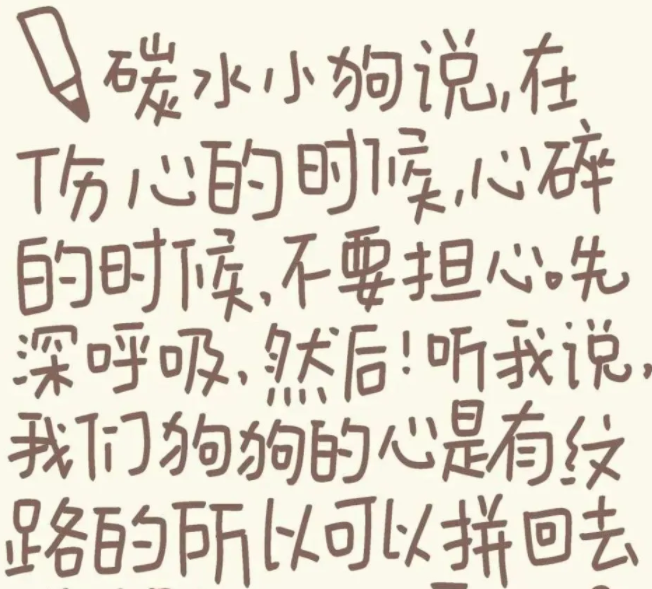 碳水小狗说,在
伤心的时候,心碎
的时候,不要担心。先
深呼吸,然后!听我说,
我们狗狗的心是有纹
路的所以可以拼回去